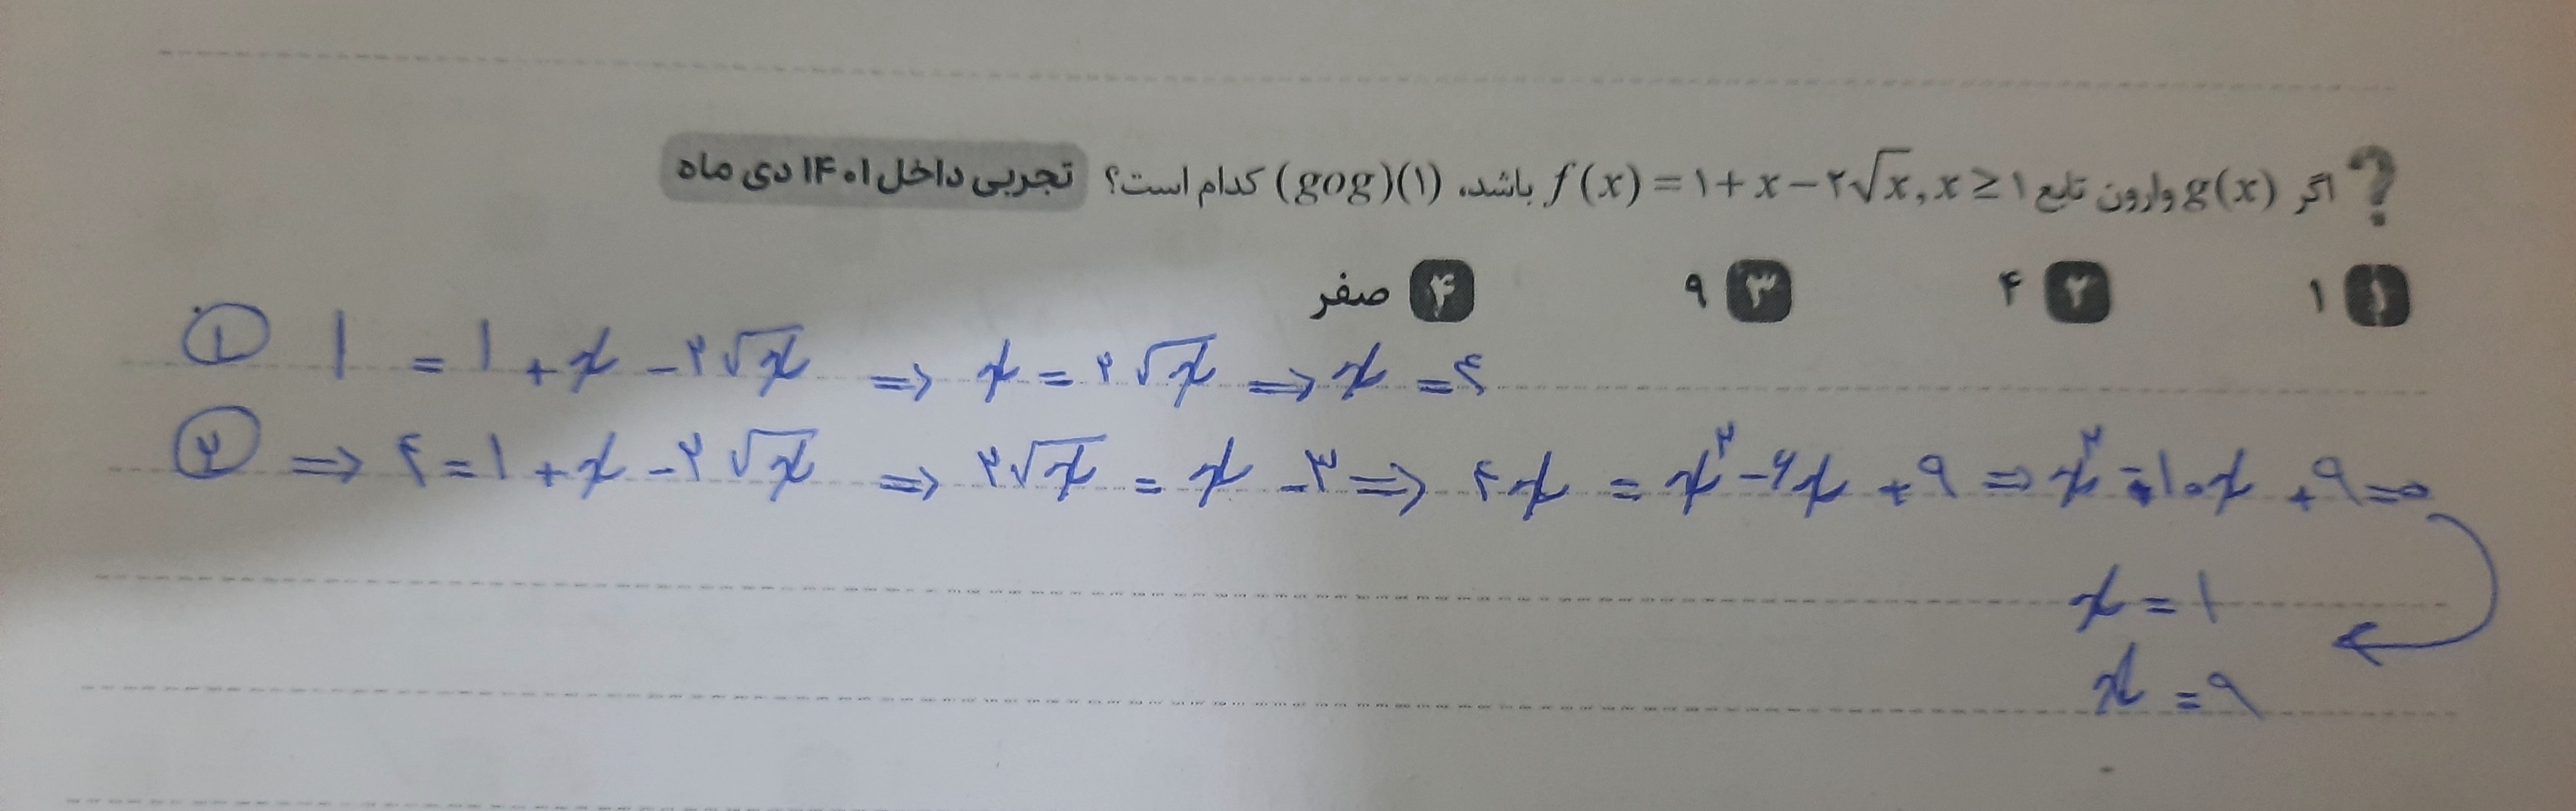 ? اگر g(x) وارون تابع f(x) = ۱ + x − ۲√x , x ≥ ۱ باشد، (gog)(۱) کدام است؟ تجربی داخل ۱۴۰۱ دی ماه
۱ ۱ ۲ ۴ ۳ ۹ ۴ صفر
① ۱ = ۱ + x − ۲√x ⇒ x = ۲√x ⇒ x = ۴
② ⇒ ۴ = ۱ + x − ۲√x ⇒ ۲√x = x − ۳ ⇒ ۴x = x² − ۶x + ۹ ⇒ x² − ۱۰x + ۹ = ۰
x = ۱
x = ۹